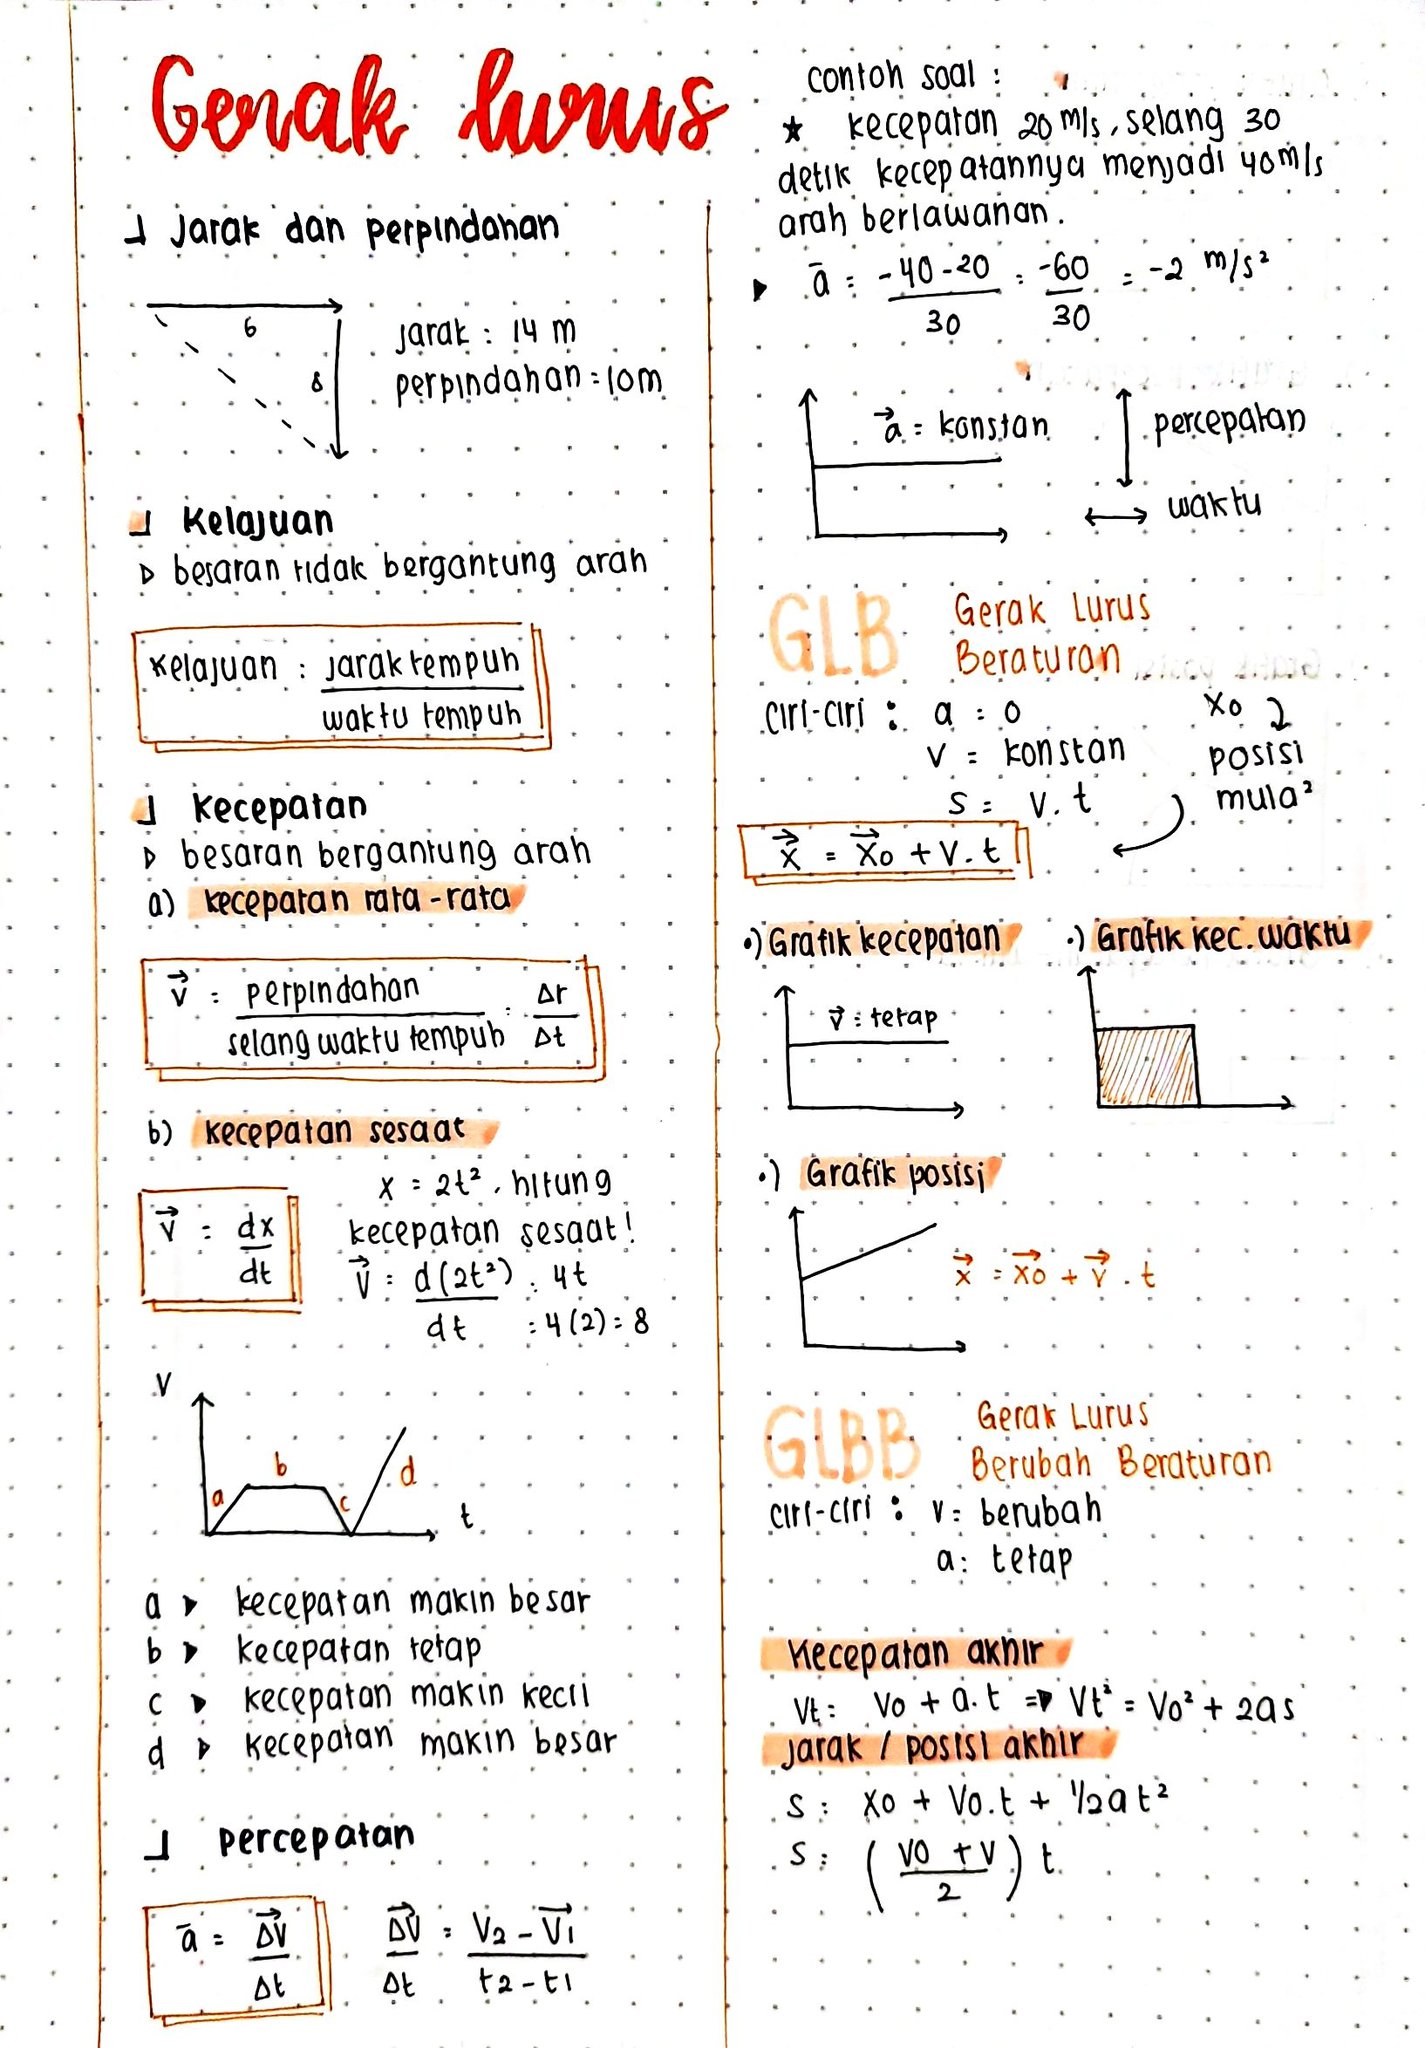 Gerak lurus
Jarak dan perpindahan
6
8
Jarak : 14 m
perpindahan = 10m
Kelajuan
besaran tidak bergantung arah
Kelajuan : jarak tempuh
waktu tempuh
Kecepatan
besaran bergantung arah
a) kecepatan rata-rata
v⃗ : perpindahan : Δr
selang waktu tempuh Δt
b) kecepatan sesaat
v⃗ : dx
dt
x = 2t², hitung
kecepatan sesaat!
v⃗ : d(2t²) : 4t
dt : 4(2) = 8
V
a
b
c
d
t
a ▸ kecepatan makin besar
b ▸ kecepatan tetap
c ▸ kecepatan makin kecil
d ▸ kecepatan makin besar
percepatan
ā = ΔV⃗
Δt
ΔV⃗ = V2 - V⃗1
Δt t2 - t1
contoh soal :
★ kecepatan 20 m/s, selang 30
detik kecepatannya menjadi 40 m/s
arah berlawanan.
▸ ā = -40-20 : -60 = -2 m/s²
30 30
a⃗ = konstan
percepatan
waktu
GLB
Gerak Lurus
Beraturan
ciri-ciri : a = 0
v = konstan
s = v. t
x0
posisi
mula²
x⃗ = x⃗0 + v. t
•) Grafik kecepatan
v⃗ : tetap
•) Grafik kec. waktu
•) Grafik posisi
x⃗ = x⃗0 + v⃗ . t
GLBB
Gerak Lurus
Berubah Beraturan
ciri-ciri : v = berubah
a : tetap
Kecepatan akhir
Vt = Vo + a.t ⇒ Vt² = Vo² + 2as
jarak / posisi akhir
s : x0 + V0.t + 1/2 a t²
s : ( V0 + V ) t
2